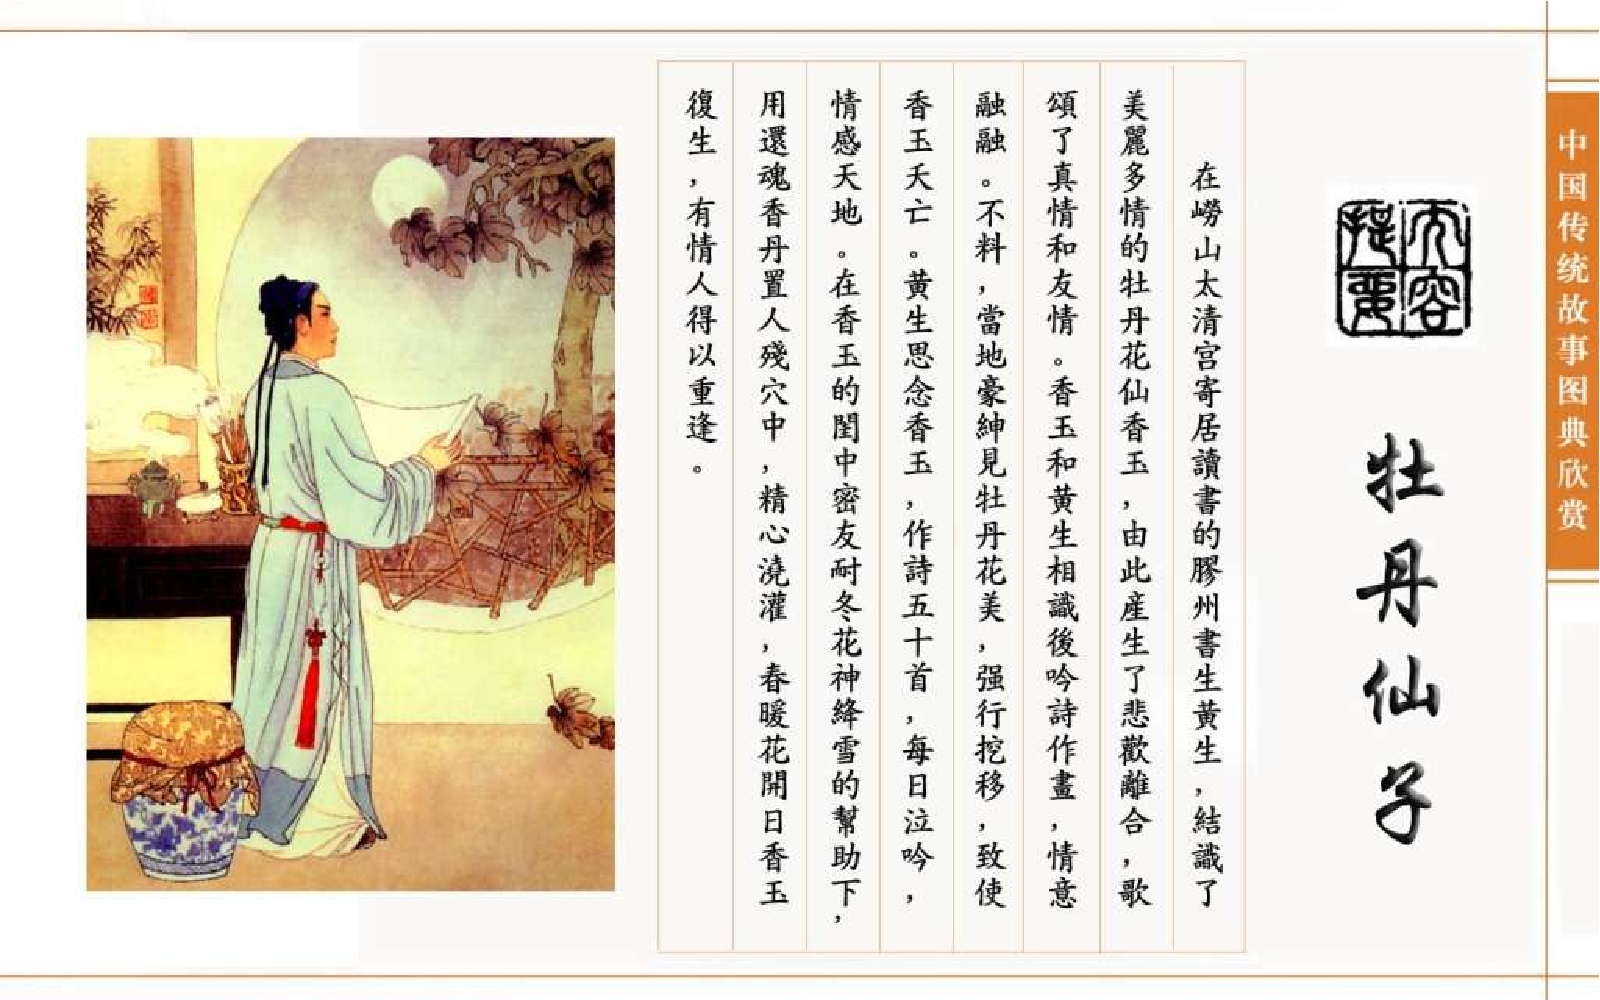 中国传统故事图典欣赏
内容提要
牡丹仙子
在嶗山太清宫寄居讀書的膠州書生黃生，結識了
美麗多情的牡丹花仙香玉，由此産生了悲歡離合，歌
頌了真情和友情。香玉和黄生相識後吟詩作畫，情意
融融。不料，當地豪紳見牡丹花美，强行挖移，致使
香玉夭亡。黄生思念香玉，作詩五十首，每日泣吟，
情感天地。在香玉的閨中密友耐冬花神絳雪的幫助下，
用還魂香丹置人殘穴中，精心澆灌，春暖花開日香玉
復生，有情人得以重逢。